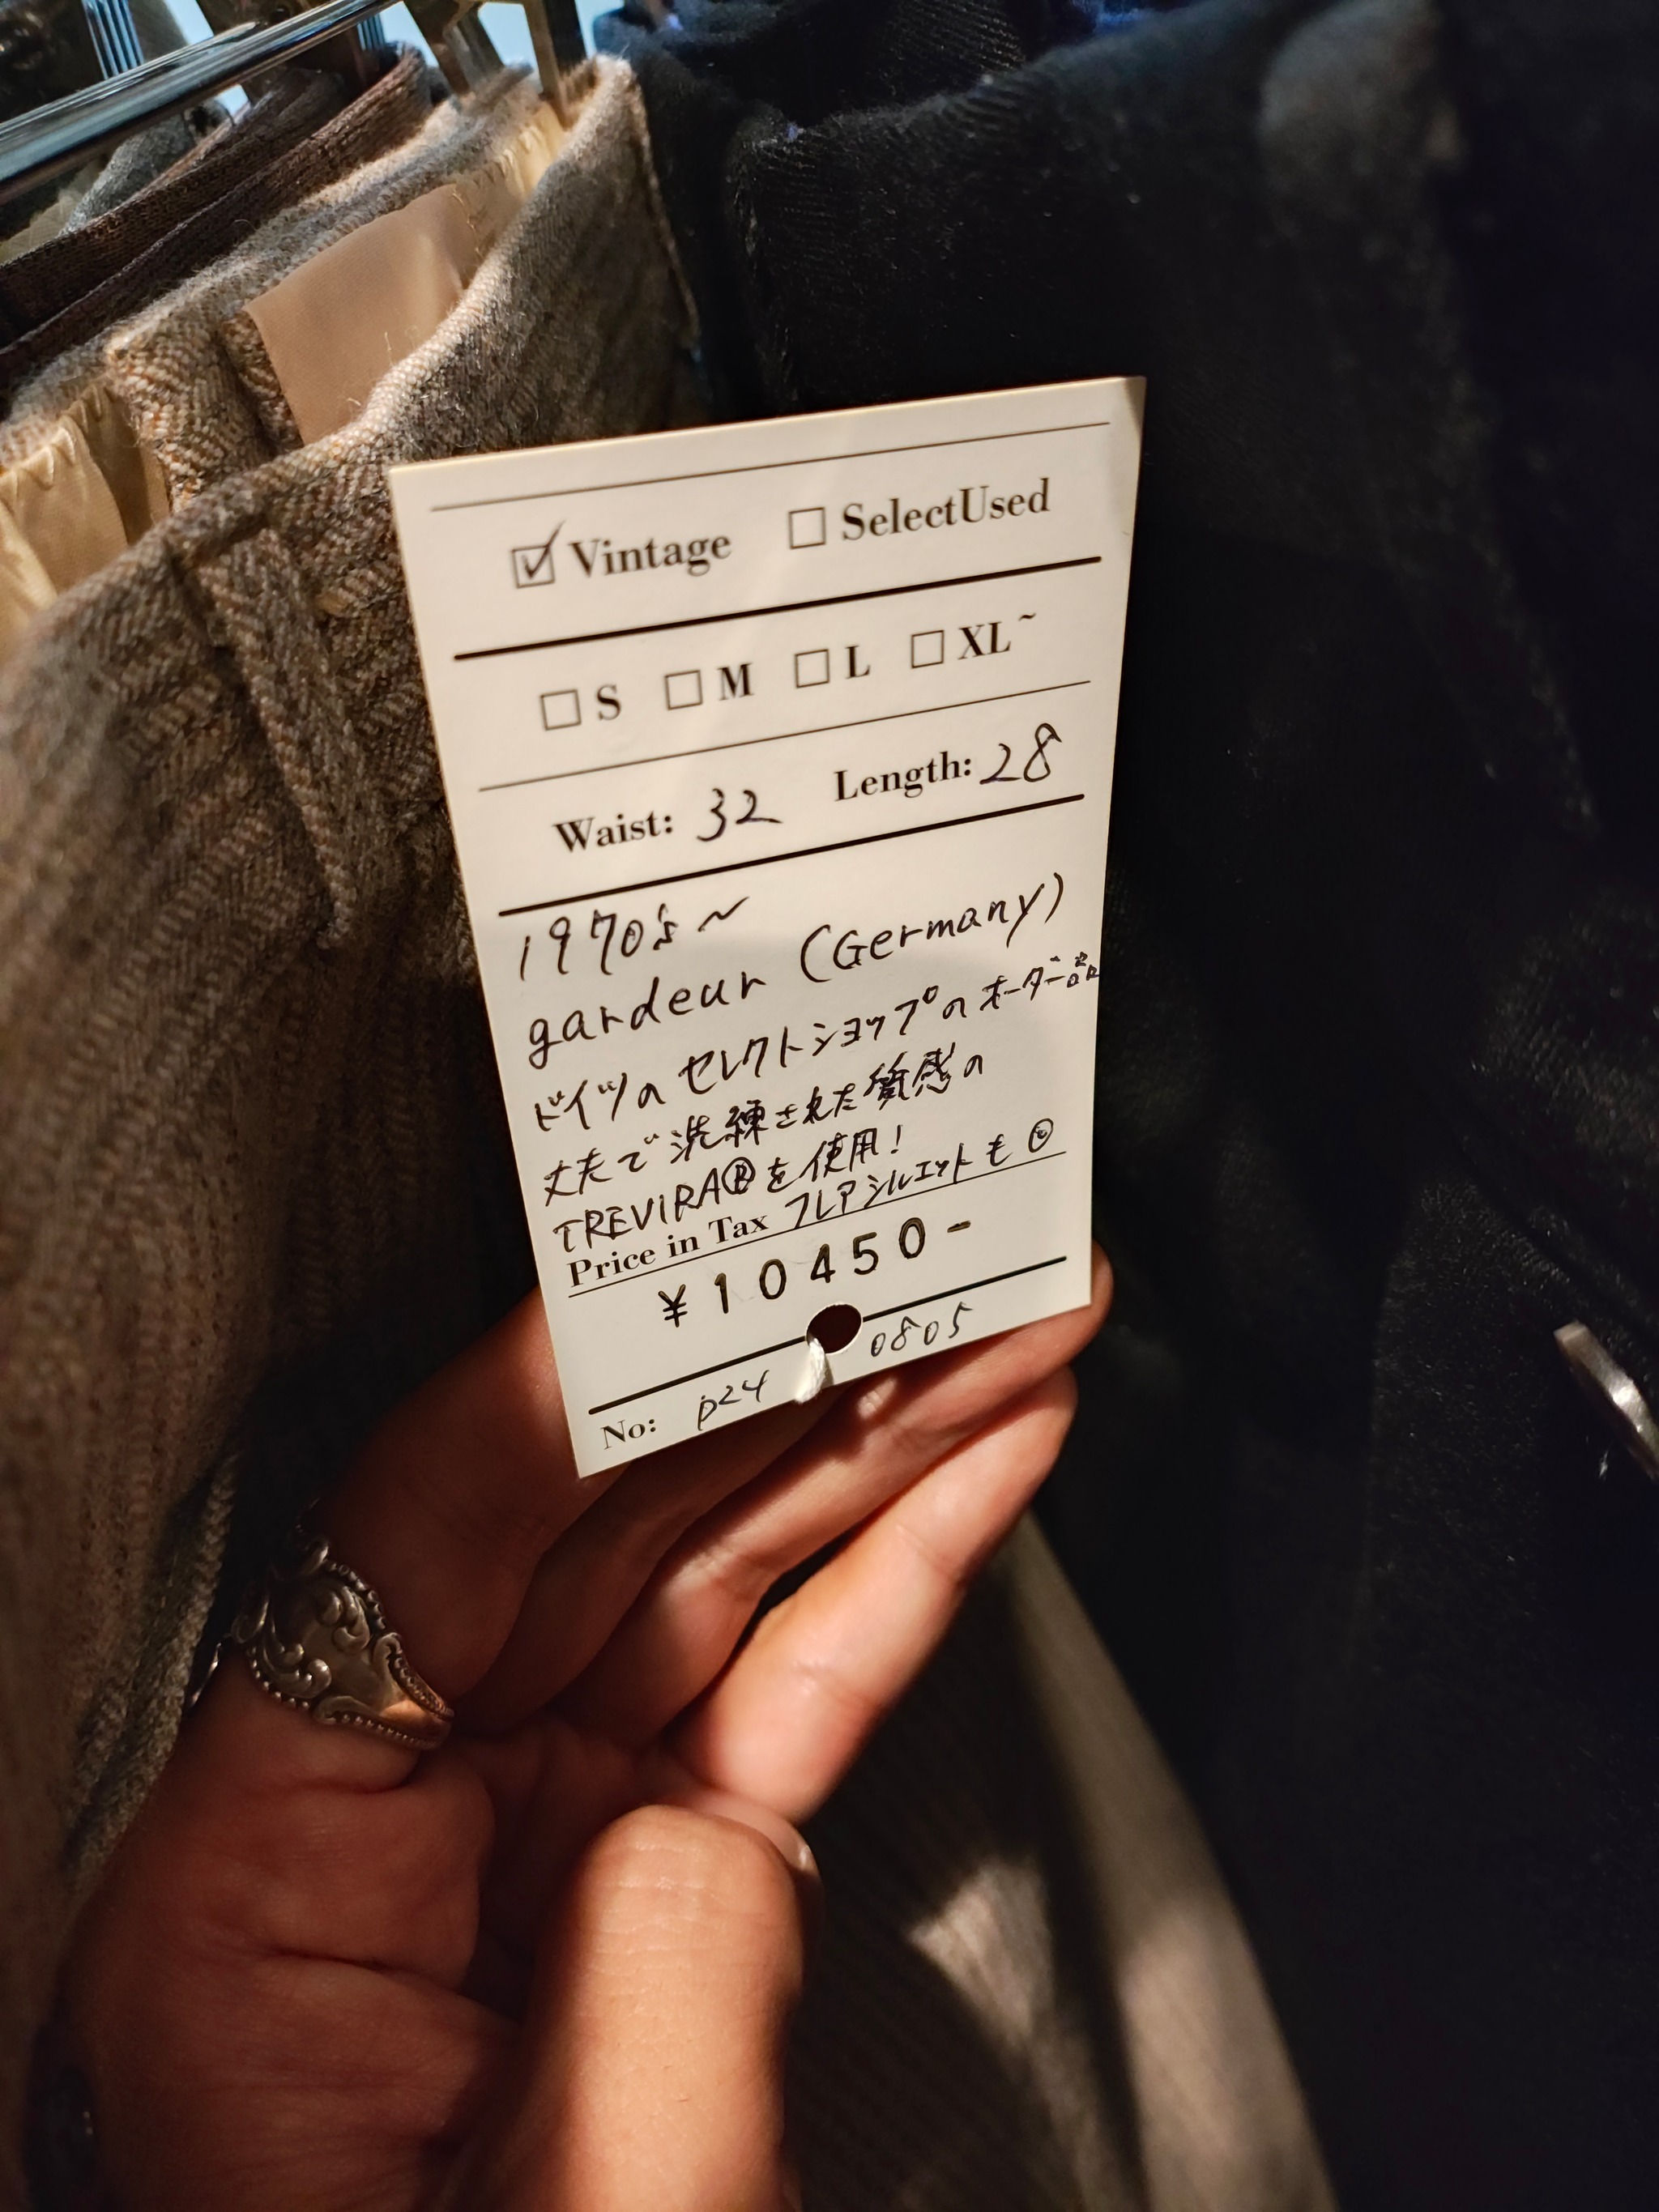 ☑ Vintage ☐ SelectUsed
☐ S ☐ M ☐ L ☐ XL~
Waist: 32 Length: 28
1970's ~
gardeur (Germany)
ドイツのセレクトショップのオーダー品
丈夫で洗練された質感の
TREVIRA®を使用!
フレアシルエットも◎
Price in Tax
¥10450-
No: p24 0805